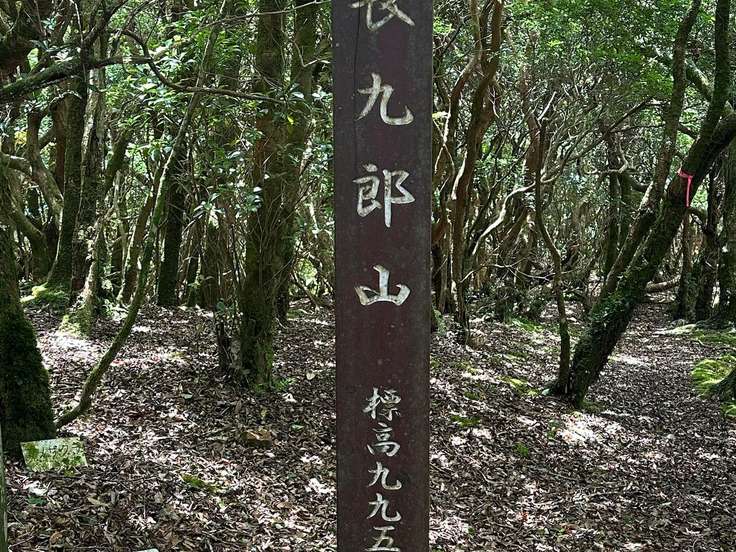 長九郎山
標高九九五